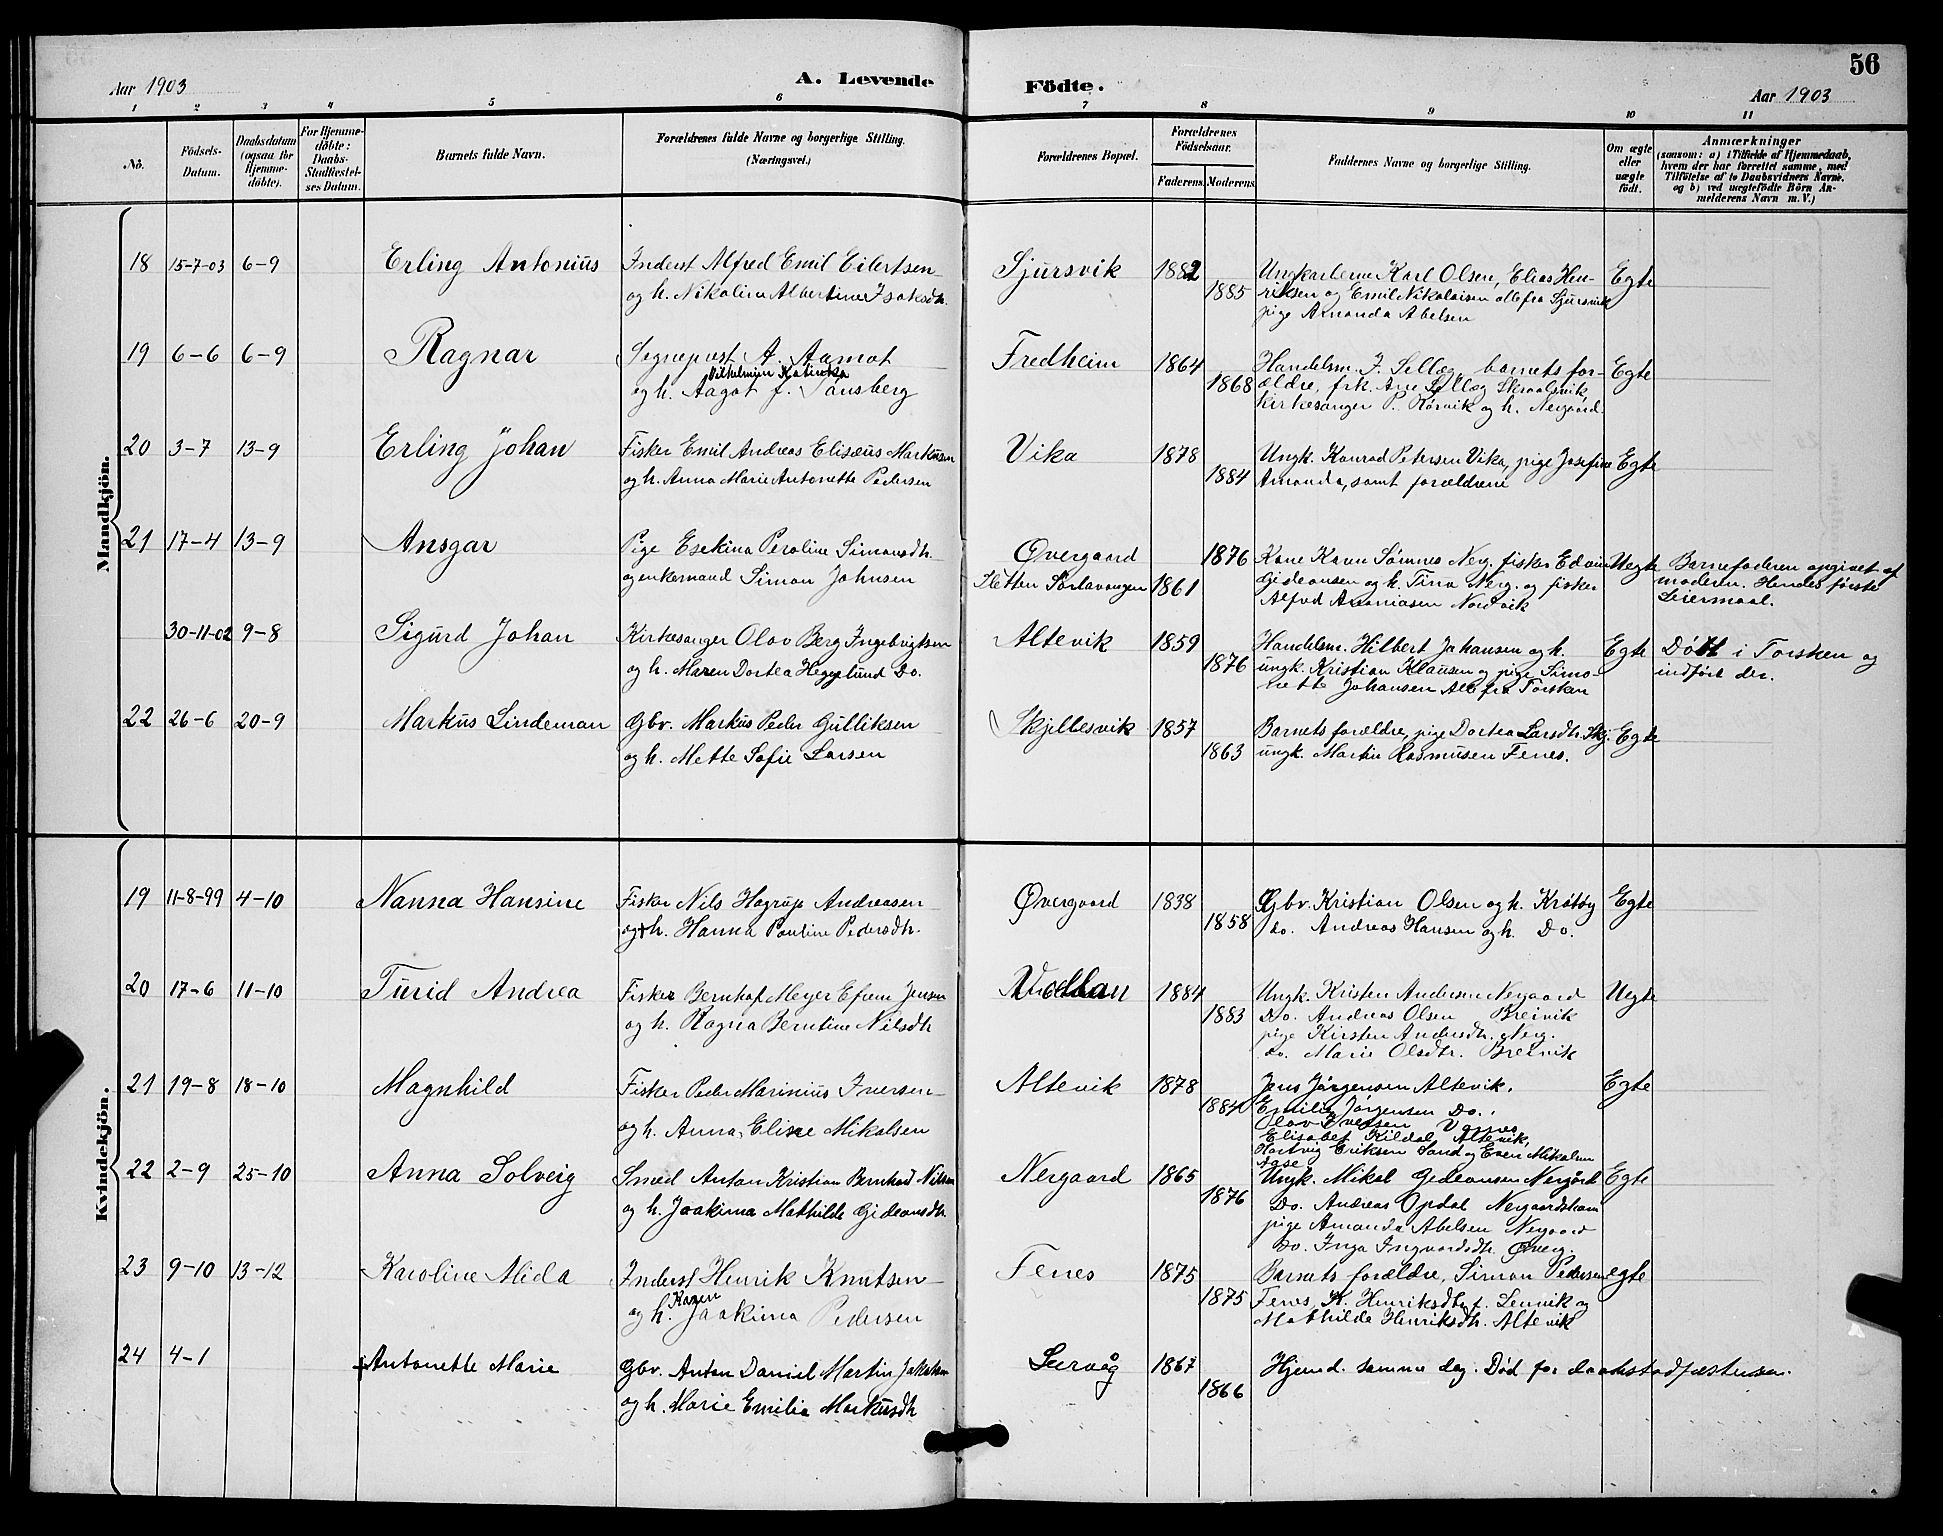 56
Aar 1903 A. Levende Födte. Aar 1903
1 2 3 4 5 6 7 8 9 10 11
No. Födsels-Datum. Daabsdatum (ogsaa for Hjemme-döbte). For Hjemme-döbte: Daabs-Stadfæstel-ses Datum. Barnets fulde Navn. Forældrenes fulde Navne og borgerlige Stilling. (Næringsvei.) Forældrenes Bopæl. Forældrenes Födselsaar. Faderens. Moderens. Faddernes Navne og borgerlige Stilling. Om ægte eller uægte födt. Anmærkninger (saasom: a) i Tilfælde af Hjemmedaab, hvem der har forrettet samme, med Tilföielse af to Daabsvidners Navne, og b) ved uægtefödte Börn An-melderens Navn m. V.)
Mandkjön.
18 15-7-03 6-9 Erling Antonius Inderst Alfred Emil Eilertsen Sjursvik 1882 Ungkarlene Karl Olsen, Elias Hen- Egte
og h. Nikoline Albertine Isaksdtr. 1885 riksen og Emil Nikolaisen alle fra Sjursvik
pige Amanda Abelsen
19 6-6 6-9 Ragnar Sogneprest A. Aamot Fredheim 1864 Handelsm. J. Selleg, barnets for- Egte
Vilhelmine Katinka
og h. Aagot f. Tønsberg 1868 ældre, frk. Selleg Skraalsvik,
kirkesanger P. Rørvik og h. Nergaard.
20 3-7 13-9 Erling Johan Fisker Emil Andreas Elisæus Markusen Vika 1878 Ungk. Konrad Petersen Vika, pige Josefine Egte
og h. Anna Marie Antonette Pedersen 1884 Amanda, samt forældrene
21 17-4 13-9 Ansgar Pige Esekina Peroline Simonsdtr. Øvergaard 1876 Kone Karen Sømnes Nerg. fisker Edvin Uegte Barnefaderen opgivet af
og enkemand Simon Johnsen Sletten Sørlavangen 1861 Gideonsen og h. Tina Nerg. og fisker moderen. Hendes første
Alfred Ananiasen Nordvik Leiermaal.
30-11-02 9-8 Sigurd Johan Kirkesanger Olav Berg Ingebrigtsen Altevik 1859 Handelsm. Hilbert Johansen og h. Egte Døbt i Torsken og
og h. Maren Dortea Hegglund Do. 1876 ungk. Kristian Klausen og pige Simo- indført der.
nette Johansen Alle fra Torsken
22 26-6 20-9 Markus Lindeman Gbr. Markus Peder Gulliksen Skjellesvik 1857 Barnets forældre, pige Dortea Larsdtr. Skj. Egte
og h. Mette Sofie Larsen 1863 ungk. Martin Rasmussen Fenes.
Kvindekjön.
19 11-8-99 4-10 Nanna Hansine Fisker Nils Hagrup Andreasen Øvergaard 1838 Gbr. Kristian Olsen og h. Krøtøy Egte
og h. Hanna Pauline Pedersdtr. 1858 Do. Andreas Hansen og h. Do.
20 17-6 11-10 Turid Andrea Fisker Bernhof Meyer Efraim Jensen 1884 Ungk. Kristen Andersen Nergaard Uegte
og h. Ragna Berntine Nilsdtr 1883 Do. Andreas Olsen Breivik
pige Kirsten Andersdtr. Nerg.
Do. Marie Olsdtr. Breivik
21 19-8 18-10 Magnhild Fisker Peder Marinius Iversen Altevik 1878 Jens Jørgensen Altevik. Egte
og h. Anna Elisne Mikalsen 1884 Emilie Jørgensen Do.
Olav Iversen
Elisabet Kildal, Altevik,
Hartvig Eriksen Sand og Even Mikalsen
22 2-9 25-10 Anna Solveig Smed Anton Kristian Bernhard Nilsen Nergaard 1865 Ungk. Mikal Gideonsen Nergård Egte
og h. Joakima Mathilde Gideonsdtr. 1876 Do. Andreas Opdal Nergaardshavn
pige Amanda Abelsen Nergaard
Do. Inga Ingvardsdtr. Øverg.
23 9-10 13-12 Karoline Alida Inderst Henrik Knutsen Fenes 1875 Barnets forældre, Simon Pedersen egte
Karen
og h. Joakima Pedersen 1875 Fenes, K. Henriksdtr. f. Lenvik og
Mathilde Henriksdtr. Altevik
24 4-1 Antonette Marie Gbr. Anton Daniel Martin Jakobsen Leervåg 1867 Hjemd. samme dag. Død før daabsstadfæstelsen.
og h. Marie Emilia Markusdtr 1866